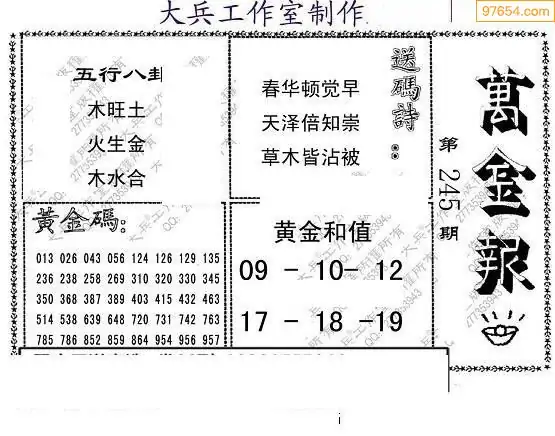 大兵工作室制作
97654.com
五行八卦
木旺土
火生金
木水合
送碼詩：
春华顿觉早
天泽倍知崇
草木皆沾被
萬金報
第245期
黄金碼：
013 026 043 056 124 126 129 135
236 238 258 269 310 320 330 345
350 368 387 389 403 415 432 463
514 538 639 648 720 731 742 763
785 786 852 859 864 954 956 957
黄金和值
09 - 10- 12
17 - 18 -19